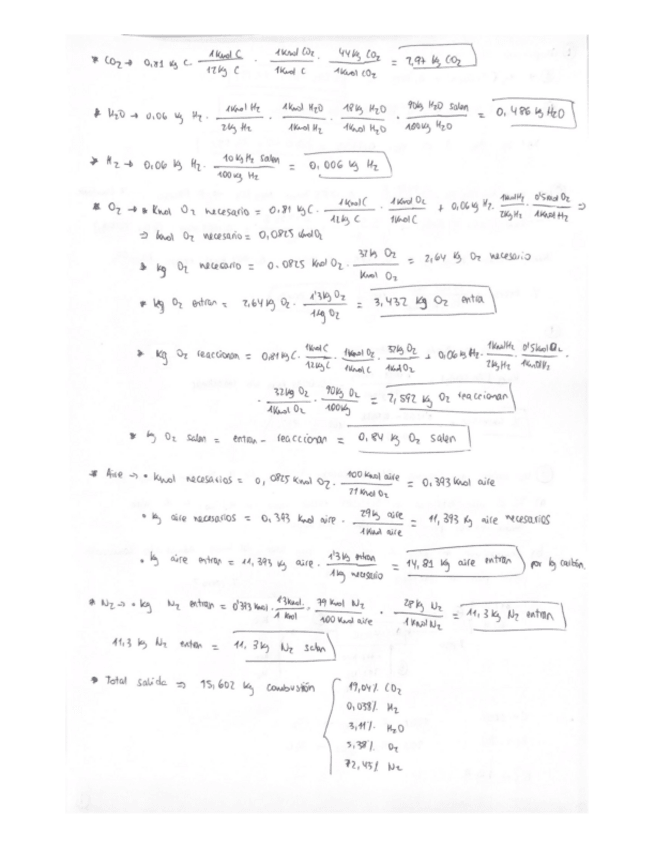 * CO2 → 0,81 kg C · 1 Kmol C / 12 kg C · 1 Kmol CO2 / 1 Kmol C · 44 kg CO2 / 1 Kmol CO2 = 2,97 kg CO2
* H2O → 0,06 kg H2 · 1 Kmol H2 / 2 kg H2 · 1 Kmol H2O / 1 Kmol H2 · 18 kg H2O / 1 Kmol H2O · 90 kg H2O salen / 100 kg H2O = 0,486 kg H2O
* H2 → 0,06 kg H2 · 10 kg H2 salen / 100 kg H2 = 0,006 kg H2
* O2 → * Kmol O2 necesario = 0,81 kg C · 1 Kmol C / 12 kg C · 1 Kmol O2 / 1 Kmol C + 0,06 kg H2 · 1 Kmol H2 / 2 kg H2 · 0'5 Kmol O2 / 1 Kmol H2 ⇒
⇒ kmol O2 necesario = 0,0825 kmol O2
* kg O2 necesario = 0.0825 Kmol O2 · 32 kg O2 / Kmol O2 = 2,64 kg O2 necesario
* kg O2 entran = 2,64 kg O2 · 1'3 kg O2 / 1 kg O2 = 3,432 kg O2 entra
* kg O2 reaccionan = 0,81 kg C · 1 Kmol C / 12 kg C · 1 Kmol O2 / 1 Kmol C · 32 kg O2 / 1 Kmol O2 + 0,06 kg H2 · 1 Kmol H2 / 2 kg H2 · 0'5 Kmol O2 / 1 Kmol H2 ·
· 32 kg O2 / 1 Kmol O2 · 90 kg O2 / 100 kg = 2,592 kg O2 reaccionan
* kg O2 salen = entran - reaccionan = 0,84 kg O2 salen
* Aire → • Kmol necesarios = 0,0825 Kmol O2 · 100 Kmol aire / 21 Kmol O2 = 0,393 Kmol aire
• kg aire necesarios = 0,393 Kmol aire · 29 kg aire / 1 Kmol aire = 11,393 kg aire necesarios
• kg aire entran = 11,393 kg aire · 1'3 kg entran / 1 kg necesario = 14,81 kg aire entran por kg carbón.
* N2 → • kg N2 entran = 0'393 Kmol · 1'3 Kmol / 1 Kmol · 79 Kmol N2 / 100 Kmol aire · 28 kg N2 / 1 Kmol N2 = 11,3 kg N2 entran
11,3 kg N2 entran = 11,3 kg N2 salen
* Total salida ⇒ 15,602 kg combustión
19,04% CO2
0,038% H2
3,11% H2O
5,38% O2
72,43% N2